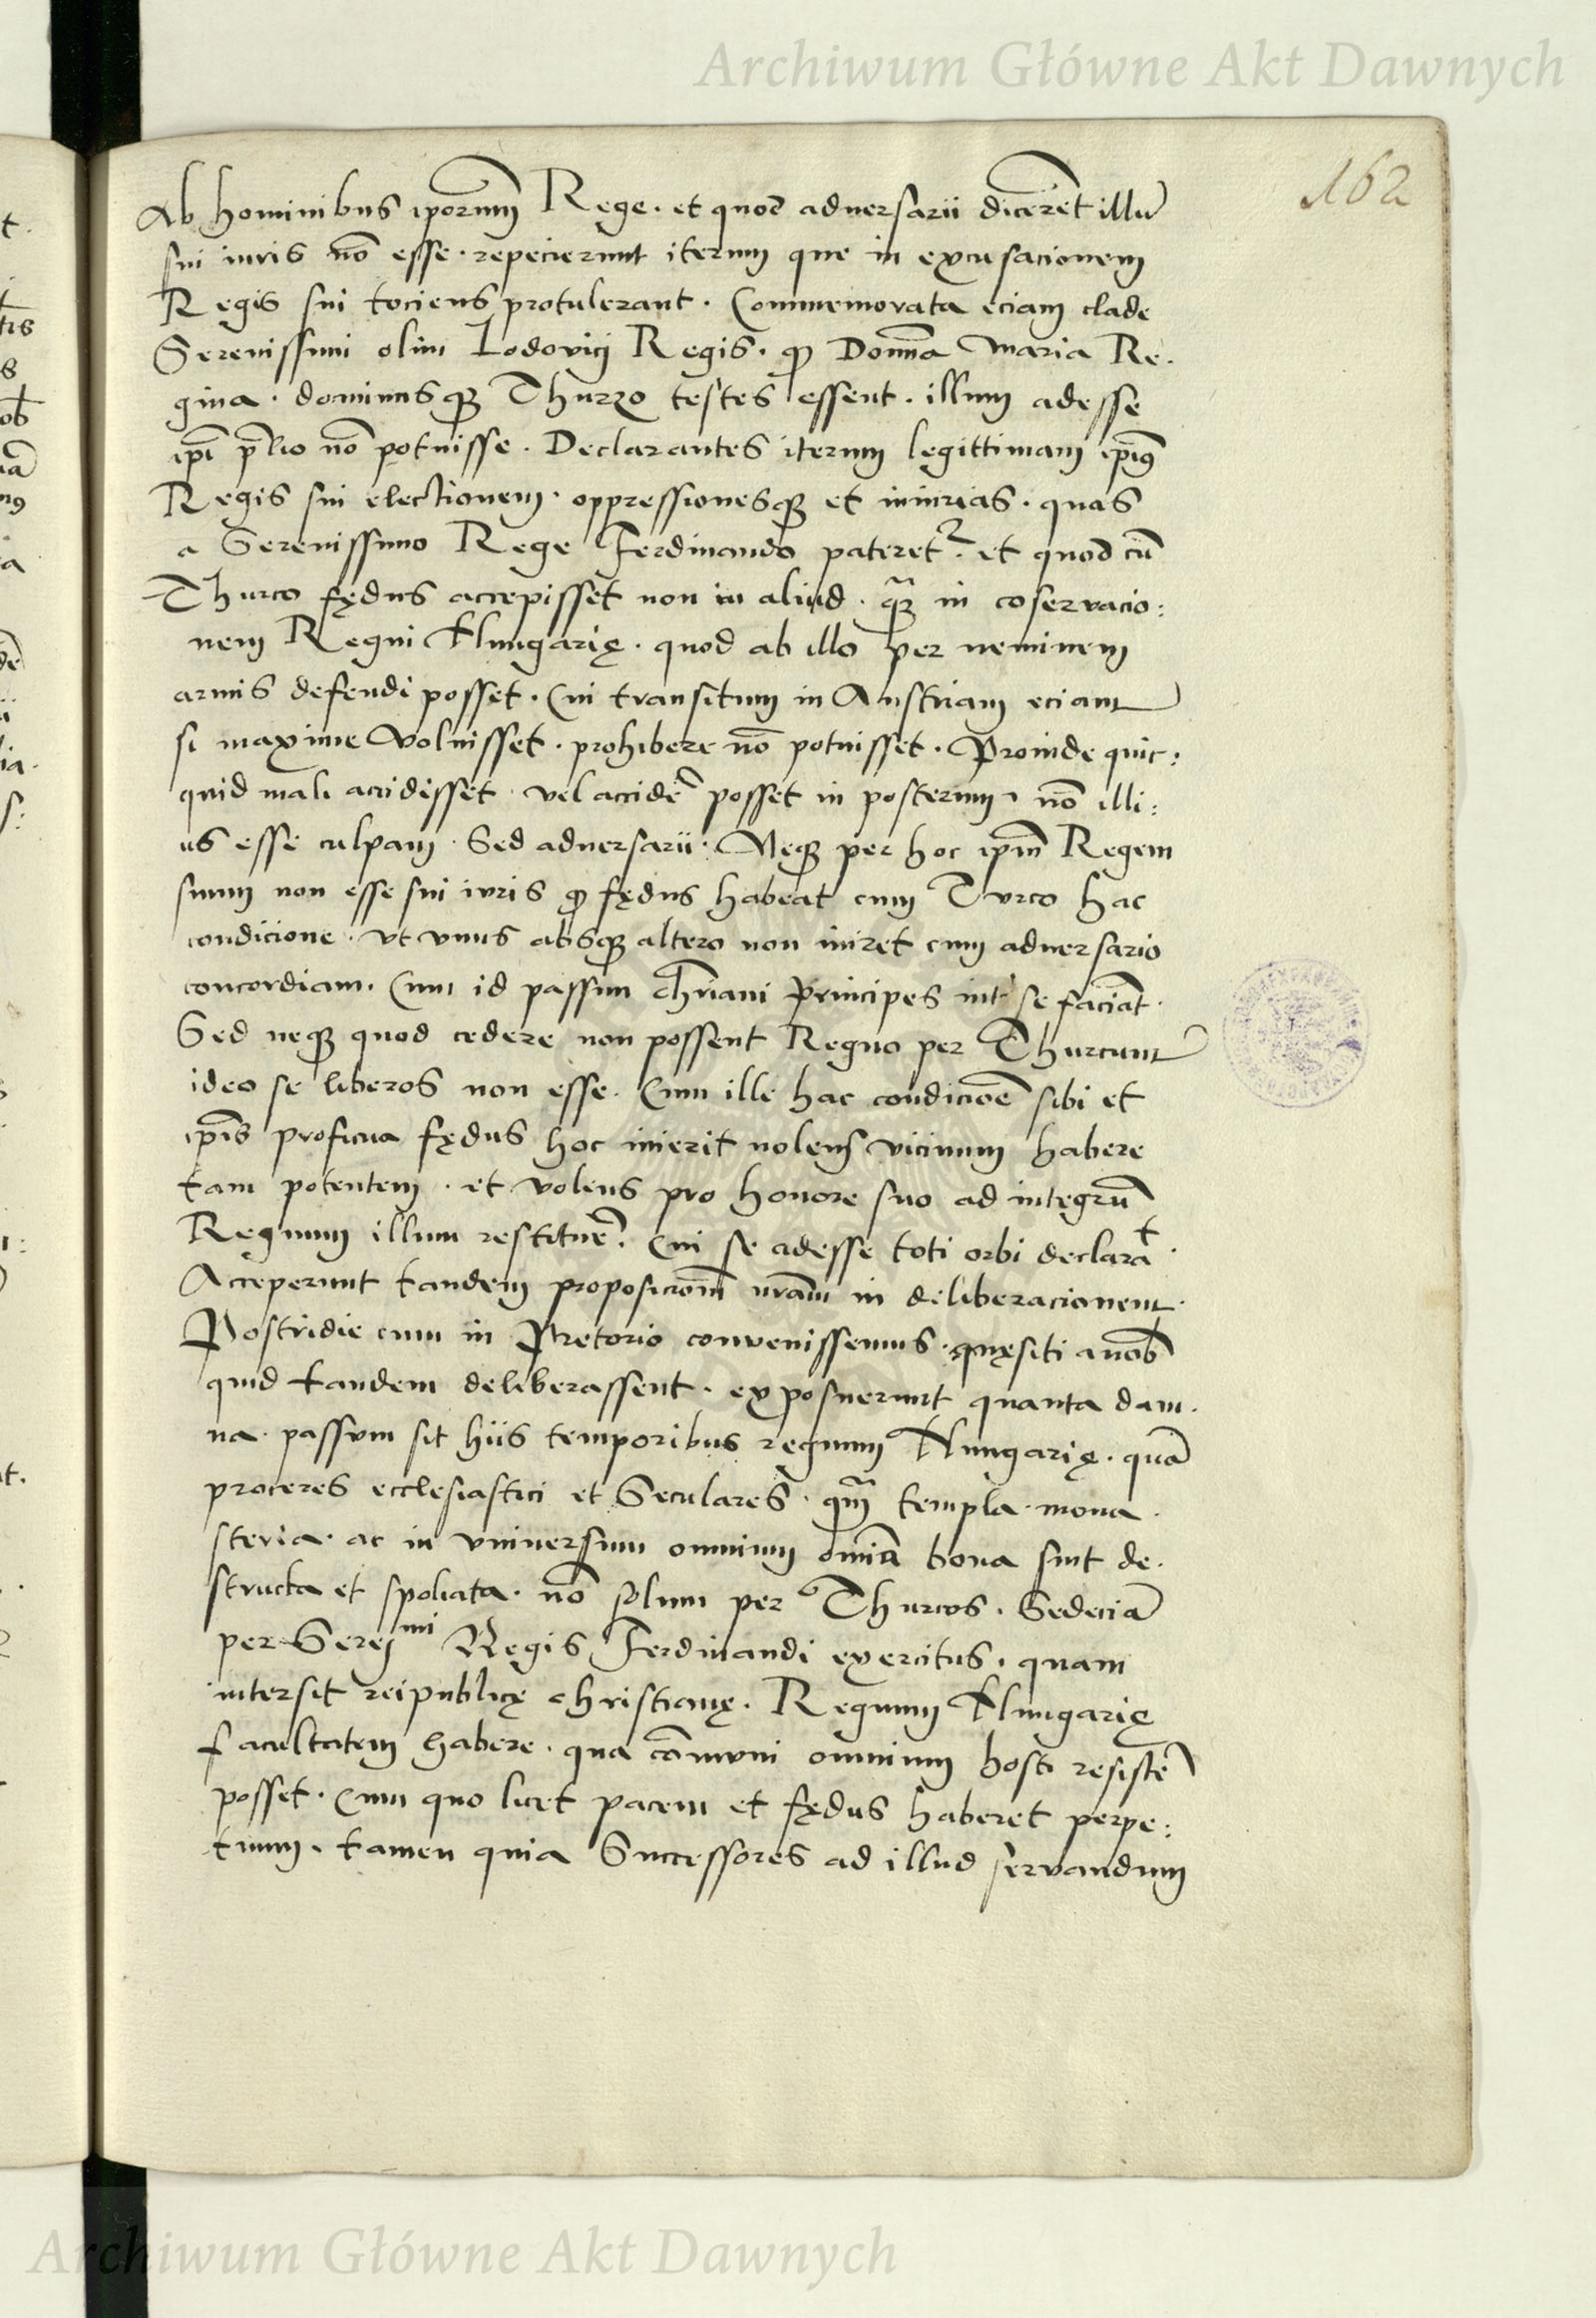 Archiwum Główne Akt Dawnych
162
Ab hominibus ipōrum Rege. et quod aduersarii dicerēt illū
sui iuris nō esse. repecierunt iterum que in excusacionem
Regis sui tociens protulerant. Commemorata eciam clade
Serenissimi olim Lodovici Regis. qꝫ Domīa Maria Re.
gina. dominusqꝫ Thurzo testes essent. illum adesse
ip̄i p̄lio nō potuisse. Declarantes iterum legittimam ip̄iꝰ
Regis sui electionem. oppressionesqꝫ et iniurias. quas
a Serenissimo Rege Ferdinando pateret᷑. et quod cū
Thurco fędus accepisset non in aliud. qꝫ̄ in coservacio:
nem Regni Hungarię. quod ab illo per neminem
armis defendi posset. Cui transitum in Austriam eciam
si maxime Voluisset. prohibere nō potuisset. Proinde quic:
quid mali accidisset. vel accidē posset in posterum, nō illi:
us esse culpam. Sed aduersarii. Neqꝫ per hoc ip̄m Regem
suum non esse sui iuris qꝫ fędus habeat cum Turco hac
condicione. vt vnus absqꝫ altero non iniret cum aduersario
concordiam. Cum id passim chr̄iani Principes int̓ se faciāt.
Sed neqꝫ quod cedere non possent Regno per Thurcum
ideo se liberos non esse. Cum ille hac condicōne sibi et
ip̄is proficua fędus hoc inierit nolens vicinum habere
tam potentem. et volens pro honore suo ad integrū
Regnum illum restituē. Cui se adesse toti orbi declarat.
Acceperunt tandem proposiciōm nr̄am in deliberacionem.
Postridie cum in Pretorio convenissemus. quęsiti a nob̄
quid tandem deliberassent. exposuerunt quanta dam.
na. passum sit hiis temporibus regnum Hungarię. quā
proceres ecclesiastici et Seculares. qm̄ templa. mona.
steria. ac in vniuersum omnium om̄ia bona sint de.
structa et spoliata. nō solum per Thurcos. Sed eciā
per Sereᵐⁱ Regis Ferdinandi exercitus. quam
intersit reipublicę christianę. Regnum Hungarię
facultatem habere. qua cōmvni omnium hosti resistē
posset. Cum quo licet pacem et fędus haberet perpe:
tuum. tamen quia Successores ad illud servandum
Archiwum Główne Akt Dawnych